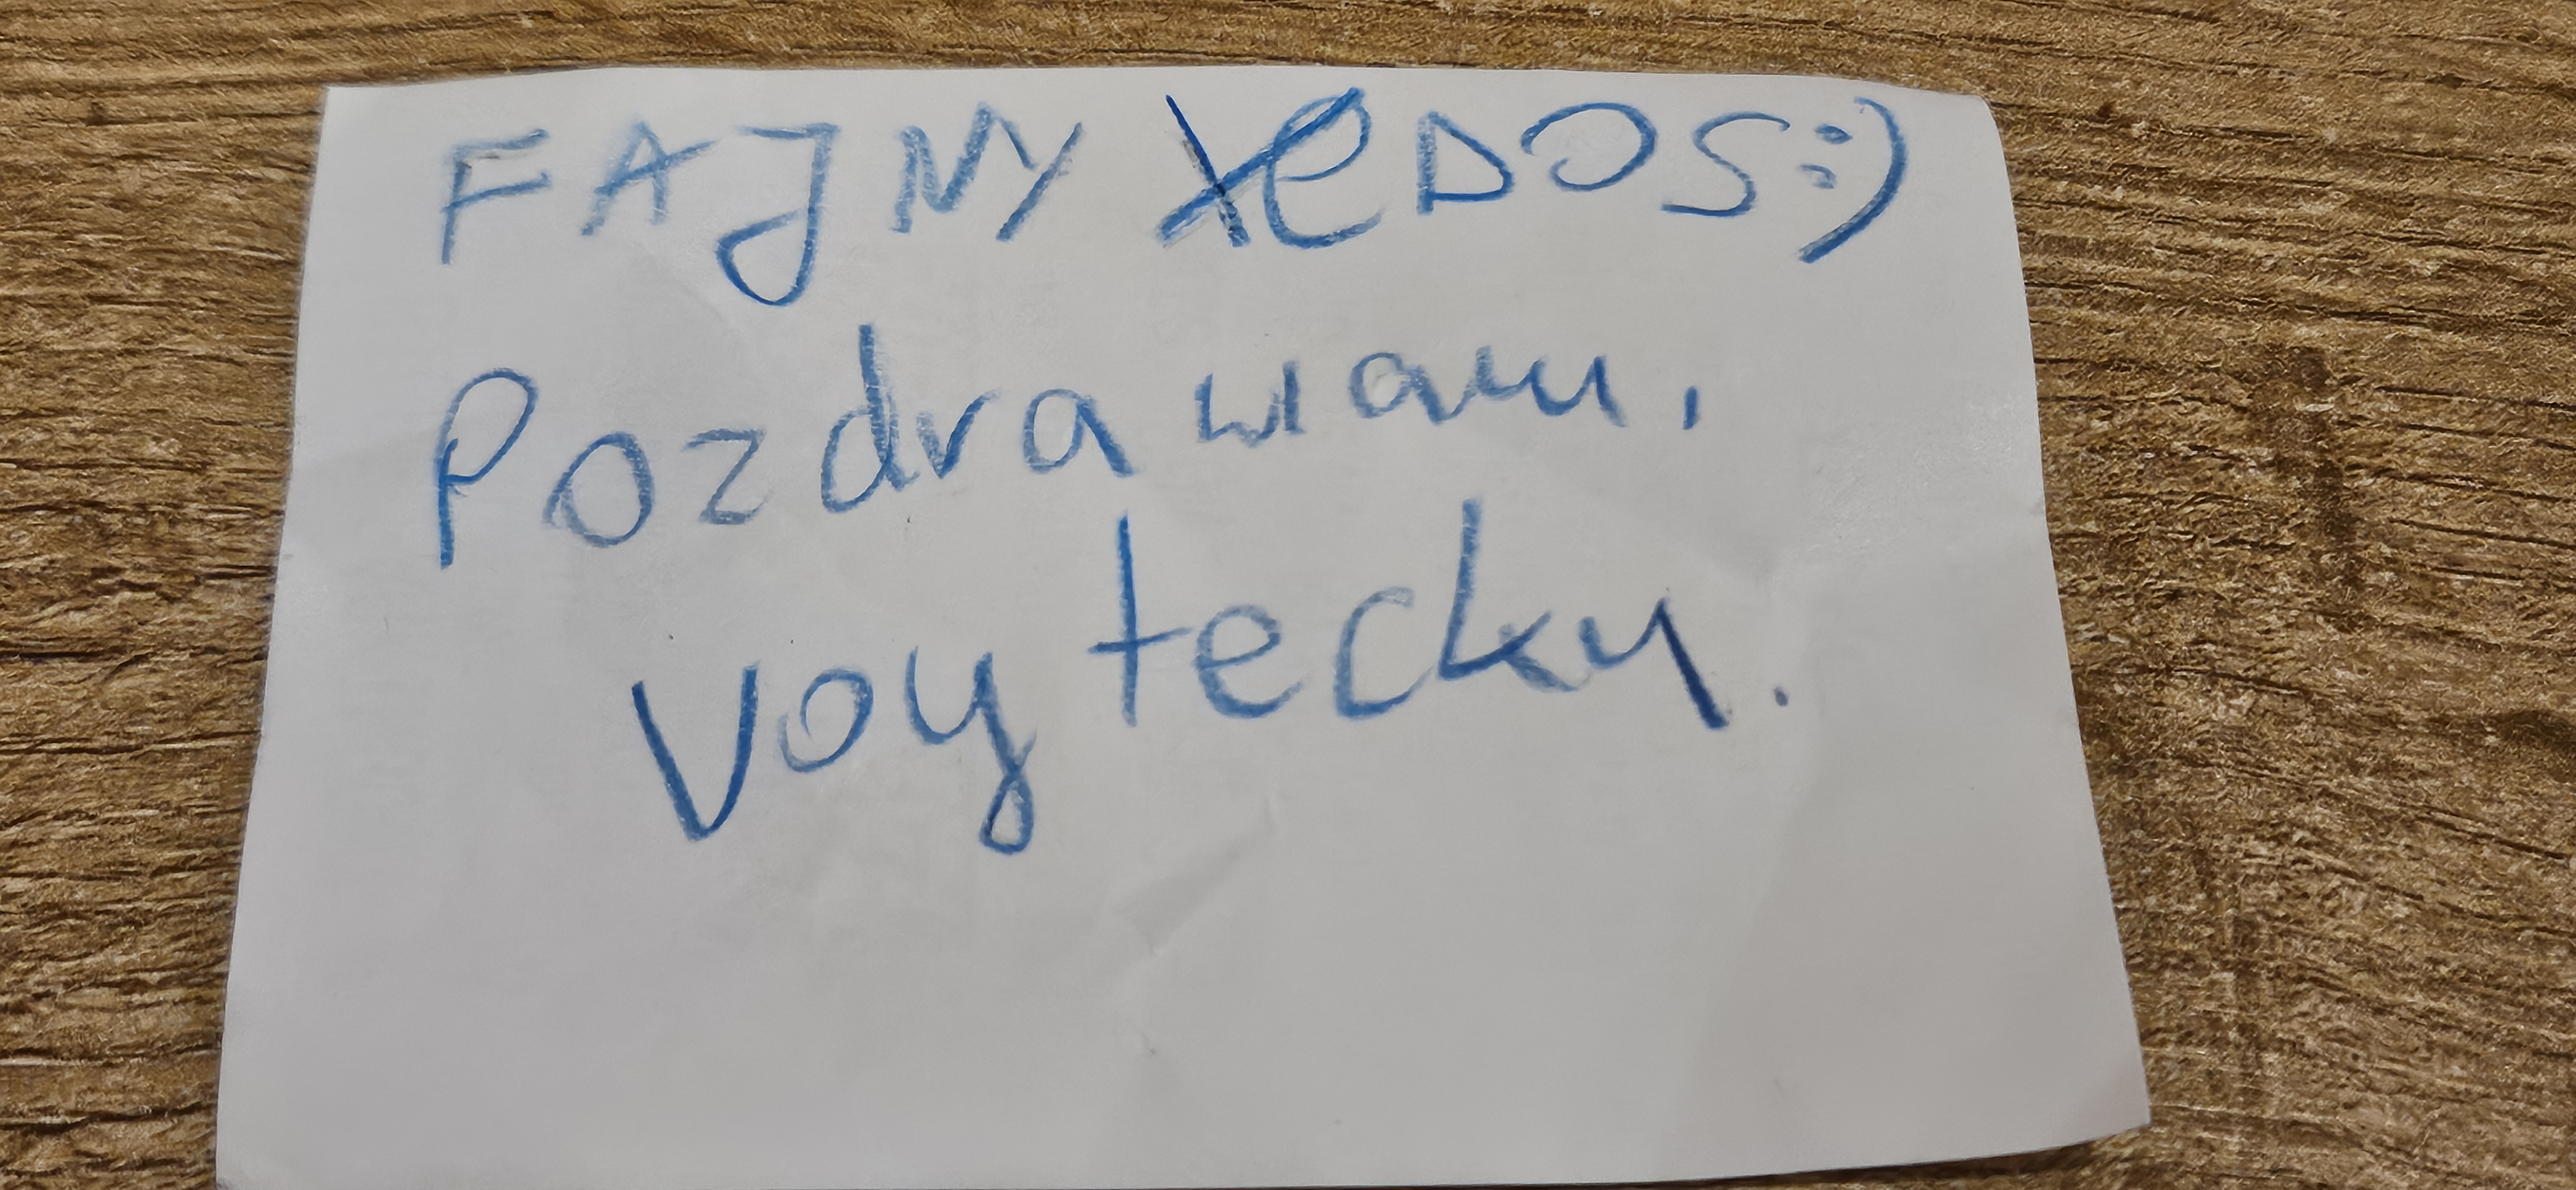 FAJNY XeDOS :)
Pozdrawam,
Voytecky.